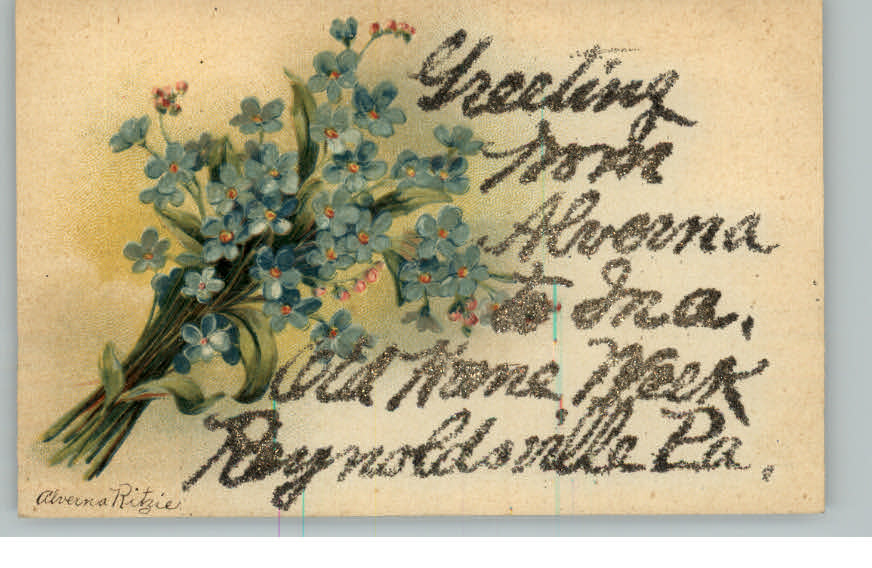 Greeting
from
Alverna
to Ina.
Old Home Week
Reynoldsville Pa.
Alverna Ritzie